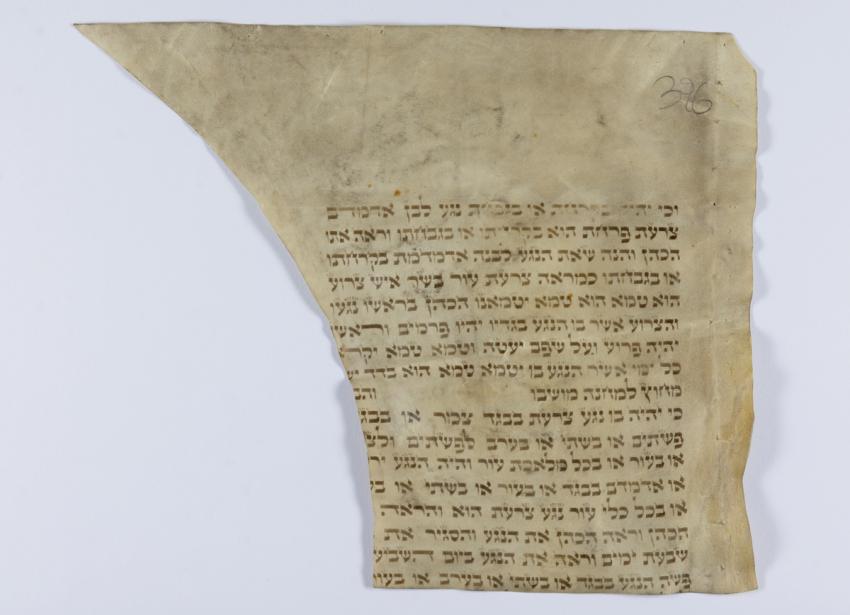 396
וכי יהיה בקרחת או בגבחת נגע לבן אדמדם
צרעת פרחת הוא בקרחתו או בגבחתו וראה אתו
הכהן והנה שאת הנגע לבנה אדמדמת בקרחתו
או בגבחתו כמראה צרעת עור בשר איש צרוע
הוא טמא הוא טמא יטמאנו הכהן בראשו נגעו
והצרוע אשר בו הנגע בגדיו יהיו פרמים וראשו
יהיה פרוע ועל שפם יעטה וטמא טמא יקרא
כל ימי אשר הנגע בו יטמא טמא הוא בדד
מחוץ למחנה מושבו
כי יהיה בו נגע צרעת בבגד צמר או
פשתים או בשתי או בערב לפשתים
או בעור או בכל מלאכת עור והיה הנגע
או אדמדם בבגד או בעור או בשתי או
או בכל כלי עור נגע צרעת הוא והראה
הכהן וראה הכהן את הנגע והסגיר את
שבעת ימים וראה את הנגע ביום
פשה הנגע בבגד או בשתי או בערב או בעור